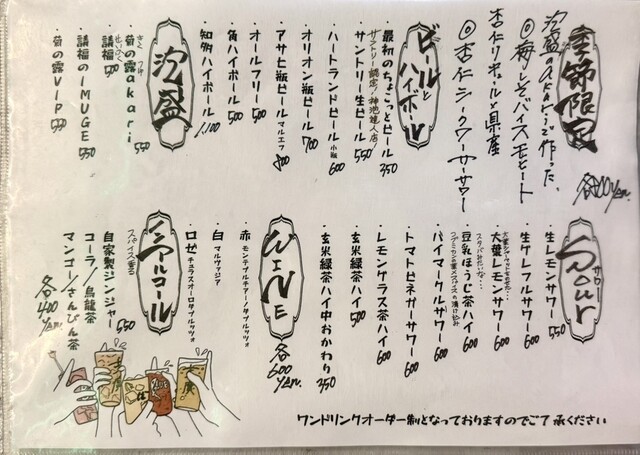 季節限定
泡盛のakariで作った、
◎梅しそバイスモヒート
杏仁リキュールと県産
◎杏仁シークワーサーサワー
各600yen.
ビールとハイボール
・最初のちょこっとビール 350
サントリー認定!神泡達人店
・サントリー生ビール 550
・ハートランドビール 小瓶 600
・オリオン瓶ビール 700
・アサヒ瓶ビール マルエフ 800
・オールフリー 500
・角ハイボール 500
・知多ハイボール 1,100
泡盛
・菊の露akari 550
きく つゆ
・請福 500
せいふく
・請福のIMUGE 550
・菊の露VIP 550
サワー
Sour
・生レモンサワー 550
・生グレフルサワー 600
・大葉レモンサワー 600
・豆乳ほうじ茶ハイ 600
スタバみたいな…
・パイマークルサワー 600
・トマトビネガーサワー 600
・レモングラス茶ハイ 600
・玄米緑茶ハイ 500
・玄米緑茶ハイ中おかわり 350
WINE
各600yen.
・赤 モンテプルチアーノダブルッツォ
・白 マルヴァジア
・ロゼ チェラスオーロダブルッツォ
ノンアルコール
スパイス香る
・自家製ジンジャー 550
・コーラ/烏龍茶
・マンゴー/さんぴん茶
各400yen
ワンドリンクオーダー制となっておりますのでご了承ください